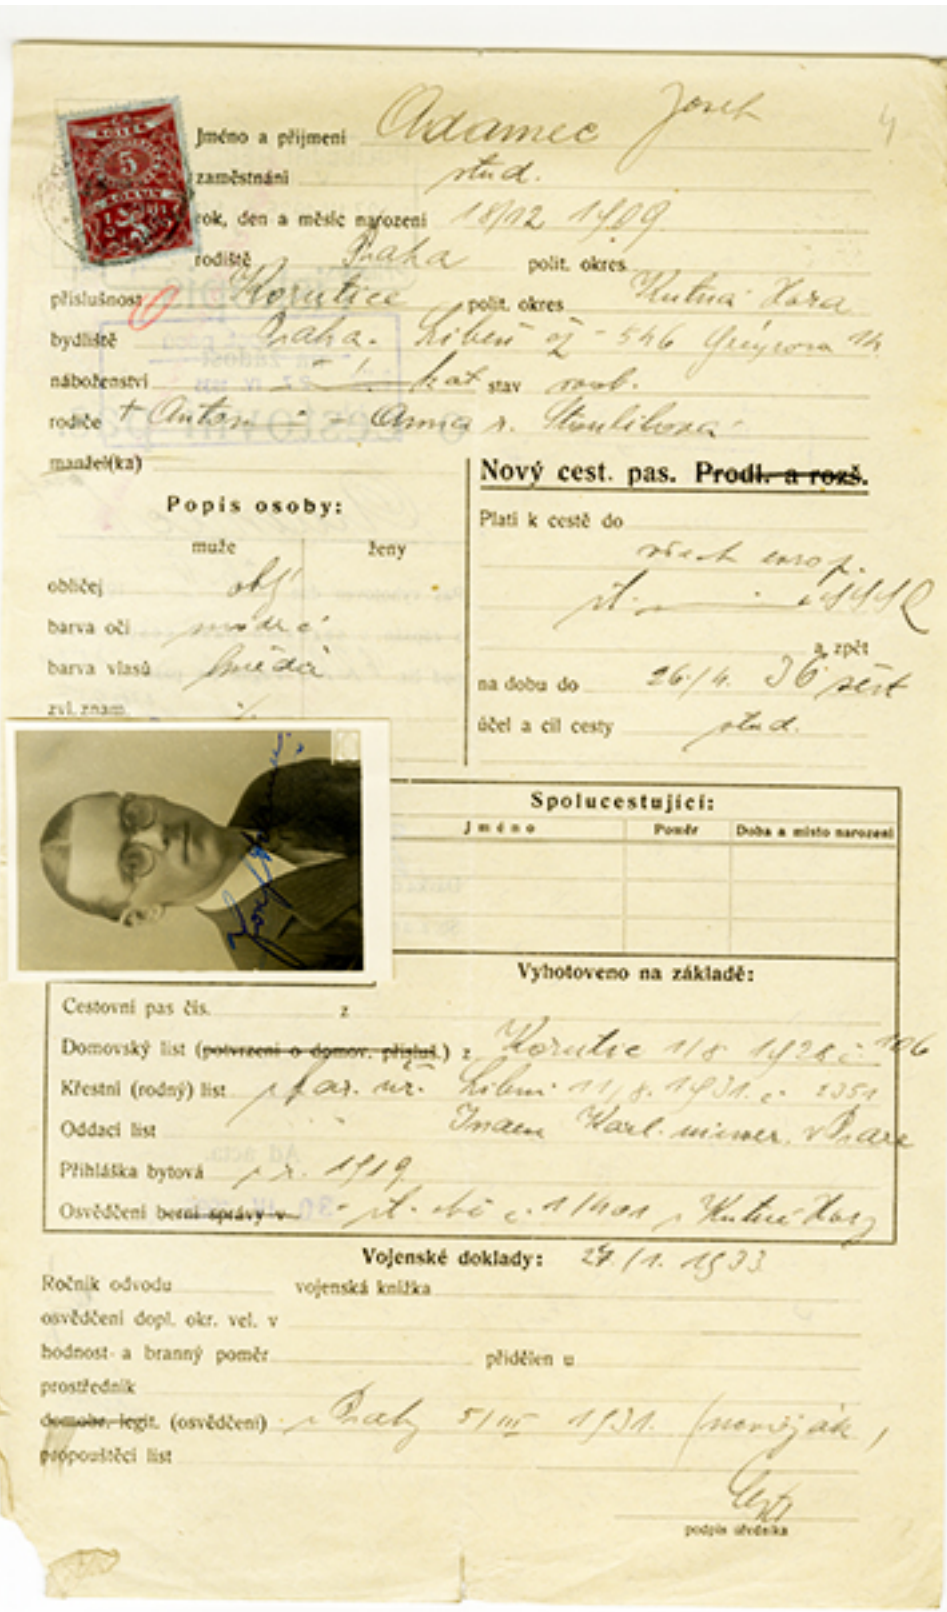 Jméno a příjmení Adamec Josef
4
5
zaměstnání stud.
rok, den a měsíc narození 18/12 1909
rodiště Praha polit. okres
příslušnost Korutice polit. okres Kutná Hora
bydliště Praha - Libeň čž - 546 Grégrova 14
náboženství kat stav svob.
rodiče + Anton - Anna r.
manžel(ka)
Nový cest. pas. Prodl. a rozš.
Popis osoby:
Platí k cestě do
muže ženy
všech evrop.
obličej obl
st. SSSR
barva očí modré
a zpět
barva vlasů hnědá
na dobu do 26/4. 36 šest
zvl. znam. %
účel a cíl cesty stud.
Spolucestující:
Jméno Poměr Doba a místo narození
Vyhotoveno na základě:
Cestovní pas čís. z
Domovský list (potvrzení o domov. přísluš.) z Korutic 1/8 1928 č 106
Křestní (rodný) list far. úř. Libni 11/8. 1931. č. 2351
Oddací list Karl. univer. v Praze
Přihláška bytová z r. 1919
Osvědčení berní správy v č. 1/401 Kutné Hory
Vojenské doklady: 27/1. 1933
Ročník odvodu vojenská knížka
osvědčení dopl. okr. vel. v
hodnost a branný poměr přidělen u
prostředník
domobr. legit. (osvědčení) z Prahy 5/III 1931. (nevoják)
propouštěcí list
podpis úředníka